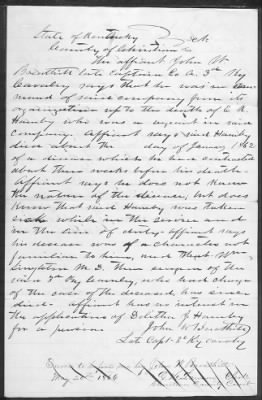 State of Kentucky } Sct.
County of Christian
The affiant John W.
Breathitt late Captain Co A. 3rd Ky
Cavalry says that he was in com
mand of said company from its
organization up to the death of C. R.
Hamby who was a private in said
company. Affiant says said Hamby
died about the day of January 1862
of a disease which he had contracted
about three weeks before his death.
Affiant says he does not know
the nature of the disease, but does
know that said Hamby was taken
sick while in the service and
in the line of duty. Affiant says
his disease was of a character not
familiar to him, and that Wm
Singleton M. D. then surgeon of the
said 3rd Ky Cavalry, who had charge
of the case of the deceased has since
died. affiant has no interest in
the application of Hamby
for a pension
John W. Breathitt
Late Capt 3rd Ky cavalry
Sworn to before me by John W. Breathitt
May 20th 1866